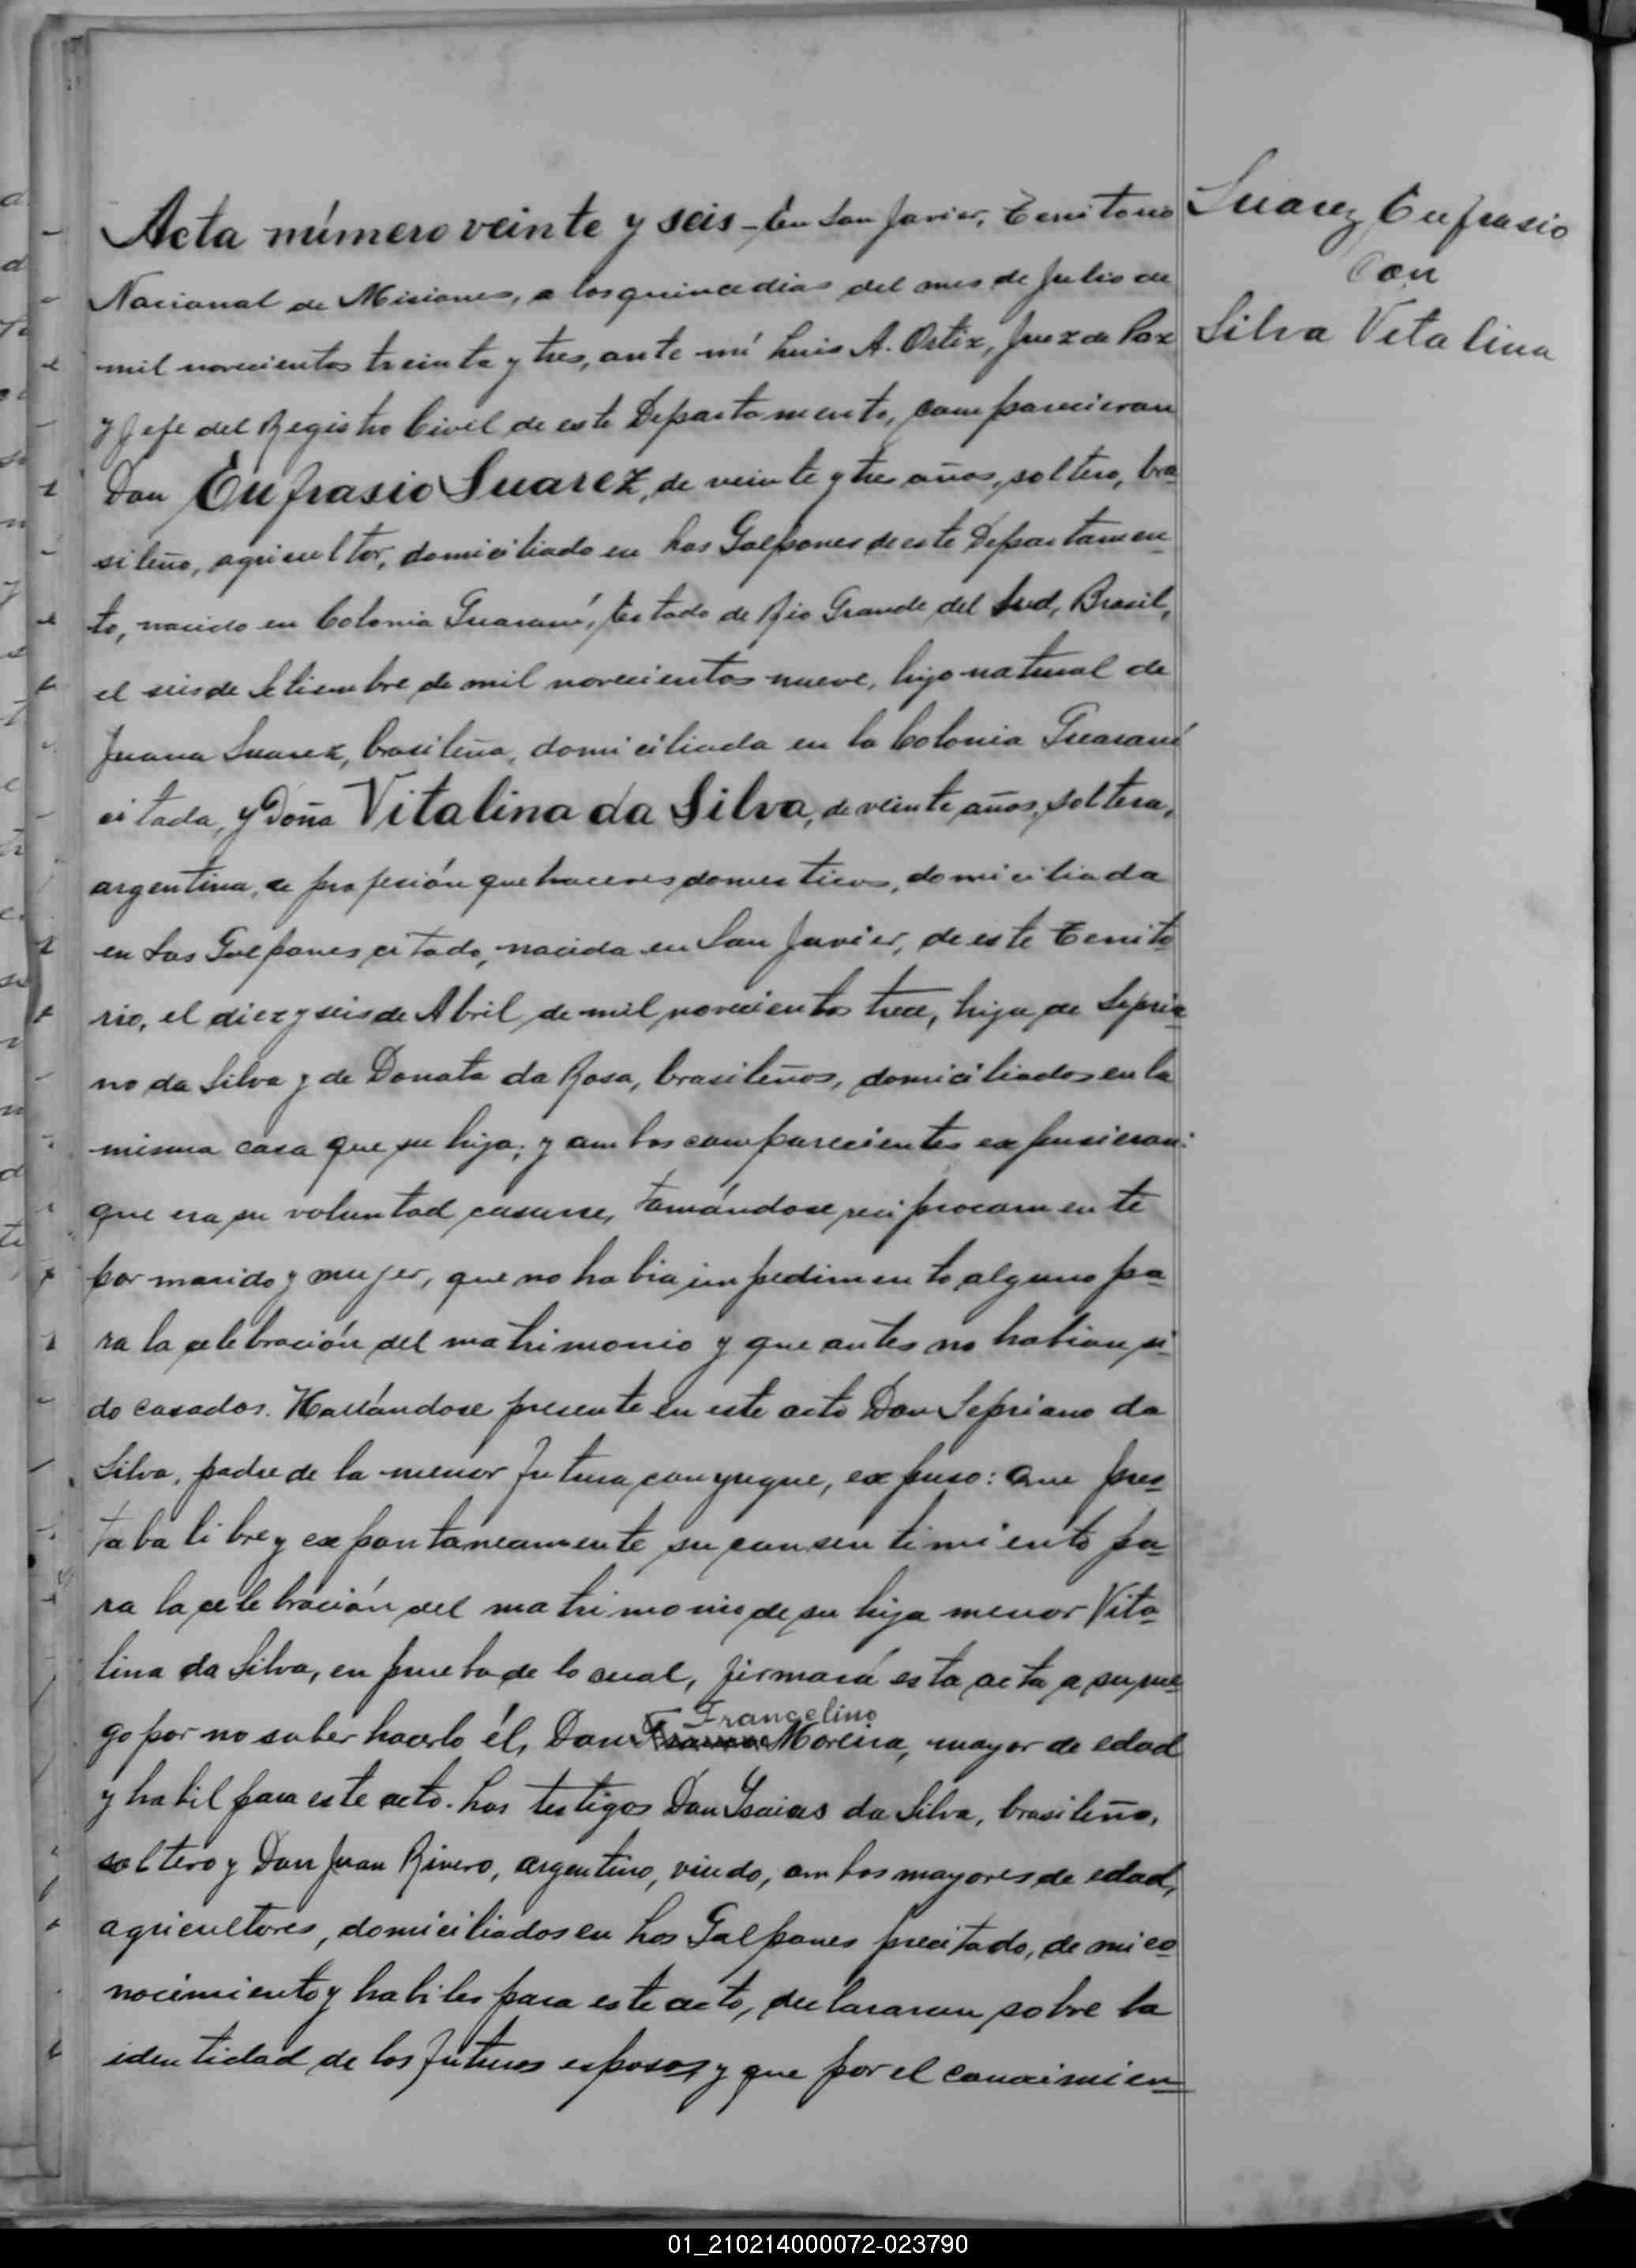 Acta número veinte y seis - En San Javier, Territorio
Nacional de Misiones, a los quince dias del mes de Julio de
mil novecientos treinta y tres, ante mí Luis A. Ortiz, Juez de Paz
y Jefe del Registro Civil de este Departamento, comparecieron
Don Eufrasio Suarez, de veinte y tres años, soltero, bra-
sileño, agricultor, domiciliado en Los Galpones de este Departamen-
to, nacido en Colonia Guaraní, Estado de Rio Grande del Sud, Brasil,
el seis de Setiembre de mil novecientos nueve, hijo natural de
Juana Suarez, brasileña, domiciliada en la Colonia Guaraní
citada, y Doña Vitalina da Silva, de veinte años, soltera,
argentina, de profesión quehaceres domesticos, domiciliada
en Los Galpones citado, nacida en San Javier, de este Territo-
rio, el diez y seis de Abril de mil novecientos trece, hija de Sepria-
no da Silva y de Donata da Rosa, brasileños, domiciliados en la
misma casa que su hija; y ambos comparecientes expusieron:
que era su voluntad casarse, tomándose reciprocamente
por marido y mujer, que no habia impedimento alguno pa-
ra la celebración del matrimonio y que antes no habian si-
do casados. Hallándose presente en este acto Don Sepriano da
Silva, padre de la menor futura conyugue, expuso: Que pres-
taba libre y expontaneamente su consentimiento pa-
ra la celebración del matrimonio de su hija menor Vita-
lina da Silva, en prueba de lo cual, firmará esta acta a su rue-
go por no saber hacerlo él, Don Francelino Moreira, mayor de edad
y habil para este acto. Los testigos Don Ysaias da Silva, brasileño,
soltero y Don Juan Rivero, argentino, viudo, ambos mayores de edad,
agricultores, domiciliados en Los Galpones precitado, de mi co-
nocimiento y habiles para este acto, declararon sobre la
identidad de los futuros esposos y que por el conocimien-
Suarez Eufrasio
Con
Silva Vitalina
01_210214000072-023790